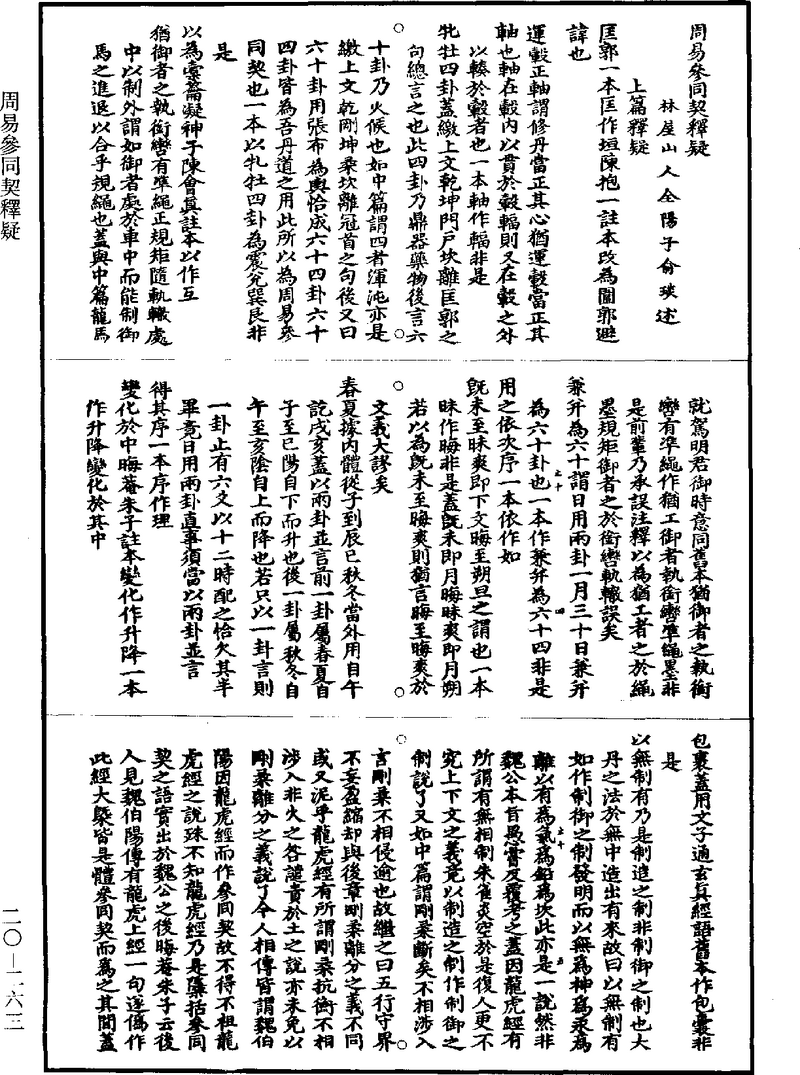 周易參同契釋疑
林屋山人全陽子俞琰述
上篇釋疑
匡郭一本匡作垣陳抱一註本改為閫郭避
諱也
運轂正軸謂修丹當正其心猶運轂當正其
軸也軸在轂內以貫於轂輻則又在轂之外
以輳於轂者也一本軸作輻非是
牝牡四卦蓋繳上文乾坤門戶坎離匡郭之
句總言之也此四卦乃鼎器藥物後言六
十卦乃火候也如中篇謂四者渾沌亦是
繳上文乾剛坤柔坎離冠首之句後又曰
六十卦用張布為輿恰成六十四卦六十
四卦皆為吾丹道之用此所以為周易參
同契也一本以牝牡四卦為震兌巽艮非
是
以為橐籥凝神子陳會真註本以作互
猶御者之執銜轡有準繩正規矩隨軌轍處
中以制外謂如御者處於車中而能制御
馬之進退以合乎規繩也蓋與中篇龍馬
就駕明君御時意同舊本猶御者之執銜
轡有準繩作猶工御者執銜轡準繩墨非
是前輩乃承誤注釋以為猶工者之於繩
墨規矩御者之於銜轡軌轍誤矣
兼并為六十謂日用兩卦一月三十日兼并
為六十卦也一本作兼并為六十四非是
用之依次序一本依作如
既未至昧爽即下文晦至朔旦之謂也一本
昧作晦非是蓋既未即月晦昧爽即月朔
若以為既未至晦爽則猶言晦至晦爽於
文義大謬矣
春夏據內體從子到辰巳秋冬當外用自午
訖戌亥蓋以兩卦並言前一卦屬春夏自
子至巳陽自下而升也後一卦屬秋冬自
午至亥陰自上而降也若只以一卦言則
一卦止有六爻以十二時配之恰欠其半
畢竟日用兩卦直事須當以兩卦並言
得其序一本序作理
變化於中晦菴朱子註本變化作升降一本
作升降變化於其中
包裹蓋用文子通玄真經語舊本作包囊非
是
以無制有乃是制造之制非制御之制也大
丹之法於無中造出有來故曰以無制有
如作制御之制發明而以無為神為汞為
離以有為氣為鉛為坎此亦是一說然非
魏公本旨愚嘗反覆考之蓋因龍虎經有
所謂有無相制朱雀炎空於是後人更不
究上下文之義竟以制造之制作制御之
制說了又如中篇謂剛柔斷矣不相涉入
言剛柔不相侵逾也故繼之曰五行守界
不妄盈縮却與後章剛柔離分之義不同
或又泥乎龍虎經有所謂剛柔抗衡不相
涉入非火之咎譴責於土之說亦未免以
剛柔離分之義說了今人相傳皆謂魏伯
陽因龍虎經而作參同契故不得不祖龍
虎經之說殊不知龍虎經乃是檃括參同
契之語實出於魏公之後晦菴朱子云後
人見魏伯陽傳有龍虎上經一句遂偽作
此經大槩皆是體參同契而為之其間蓋
周易參同契釋疑
二〇—二六三